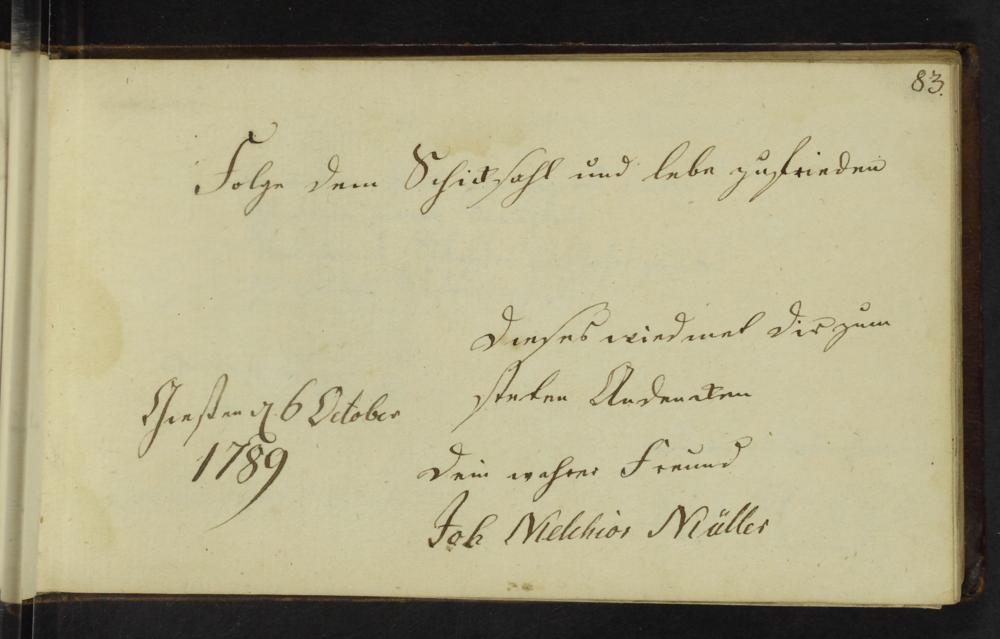 83.
Folge dem Schicksahl und lebe zufrieden
Dieses wiedmet Dir zum
steten Andencken
Giessen d 6 October
1789
Dein wahrer Freund
Joh Melchior Müller